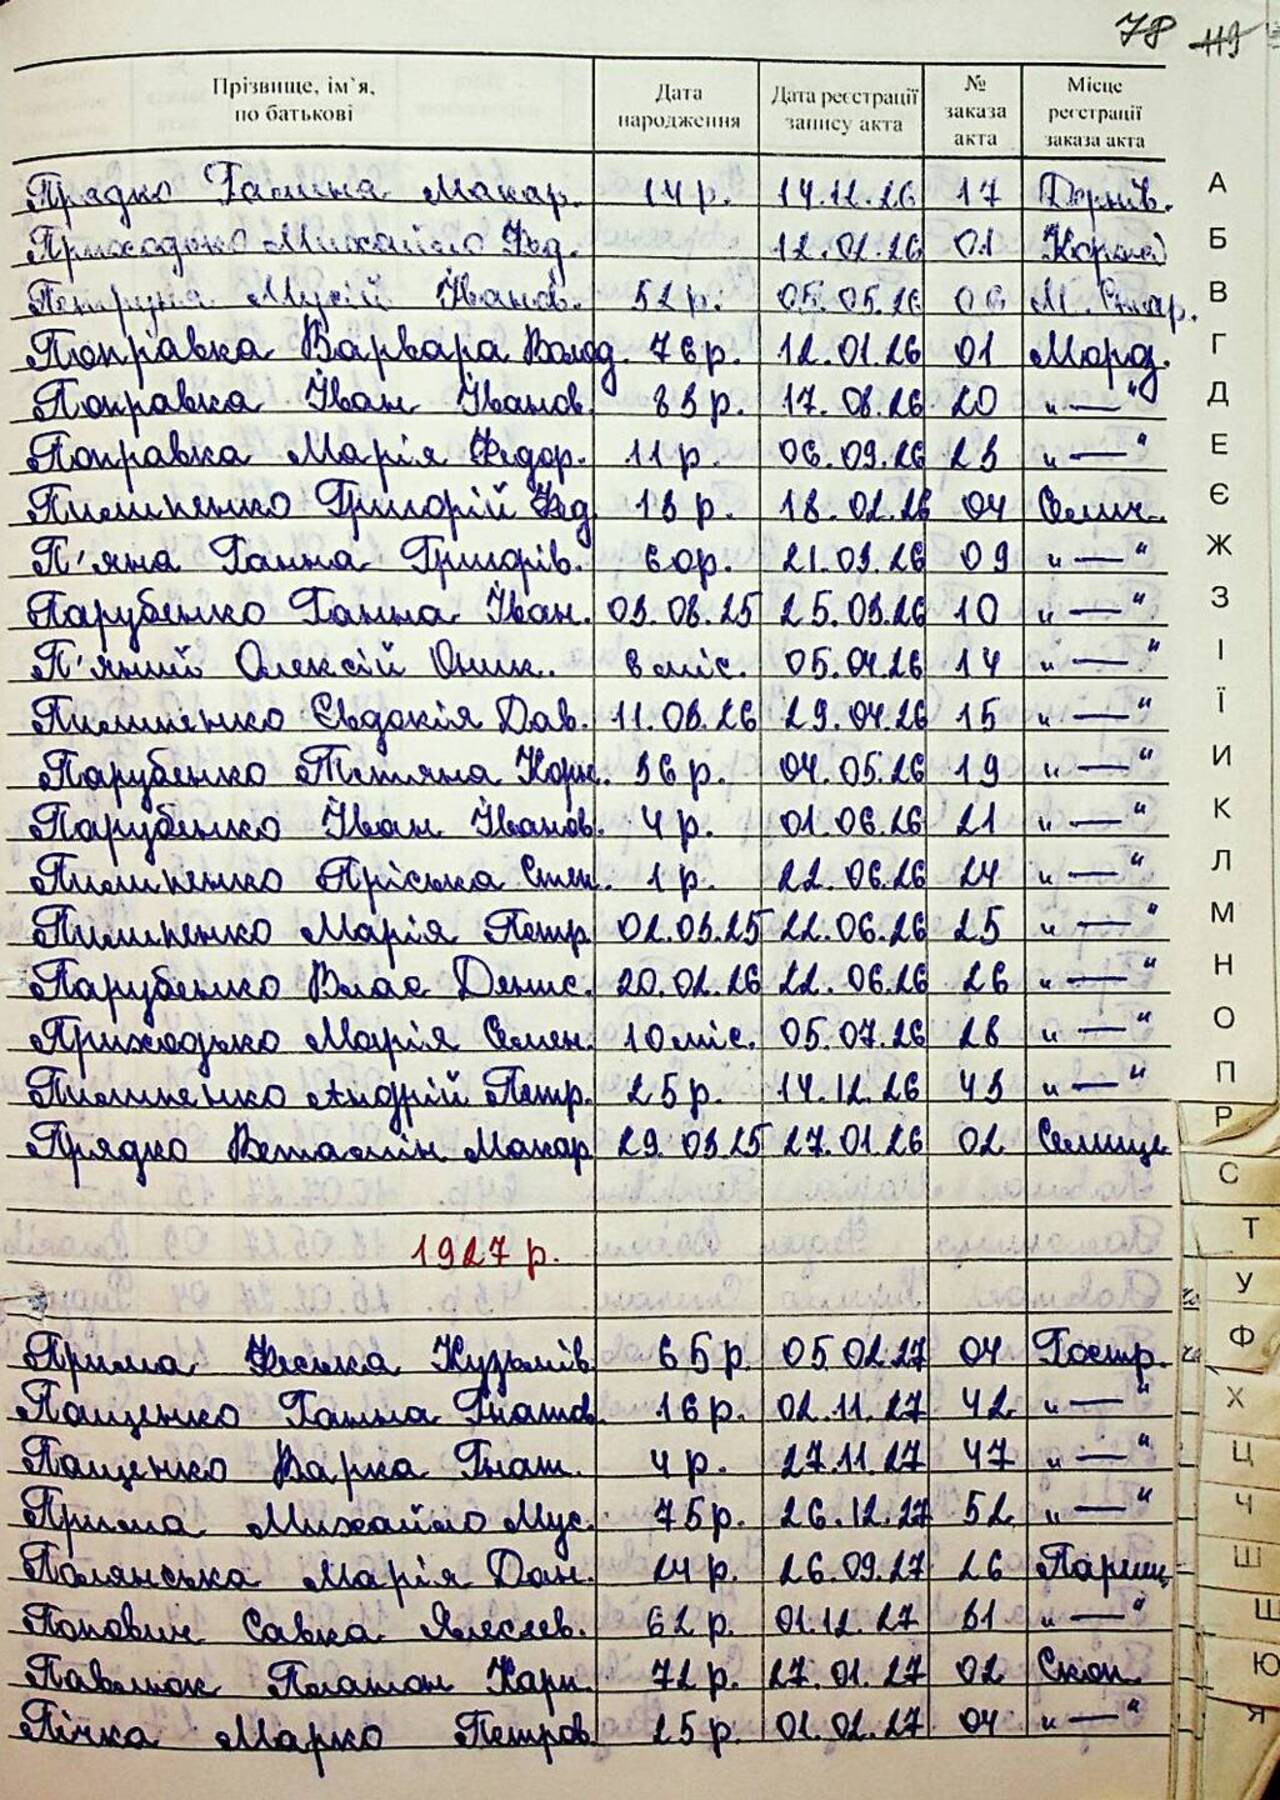 78 119
Прізвище, ім'я, по батькові | Дата народження | Дата реєстрації запису акта | № заказа акта | Місце реєстрації заказа акта
Прядко Галина Макар. 14 р. 14.12.26 17 Дернів.
Приходько Михайло Фед. 12.02.26 01 Корней
Петруня Мусій Іванов. 52 р. 05.05.26 06 М. Стар.
Поправка Варвара Волод. 76 р. 12.01.26 01 Мороз.
Поправка Іван Іванов. 83 р. 17.08.26 20 "—"
Поправка Марія Федор. 11 р. 06.09.26 23 "—"
Пилипенко Григорій Фед. 13 р. 18.02.26 04 Селич.
П'яна Ганна Григорів. 60 р. 21.03.26 09 "—"
Парубенко Ганна Іван. 03.08.25 25.03.26 10 "—"
П'яний Олексій Оник. 8 міс. 05.04.26 14 "—"
Пилипенко Євдокія Дав. 11.03.26 29.04.26 15 "—"
Парубенко Тетяна Корн. 36 р. 04.05.26 19 "—"
Парубенко Іван Іванов. 4 р. 01.06.26 21 "—"
Пилипенко Пріська Степ. 1 р. 22.06.26 24 "—"
Пилипенко Марія Петр. 02.03.25 22.06.26 25 "—"
Парубенко Влас Денис. 20.02.26 22.06.26 26 "—"
Приходько Марія Семен. 10 міс. 05.07.26 28 "—"
Пилипенко Андрій Петр. 25 р. 14.12.26 43 "—"
Прядко Веніамін Макар 29.03.25 27.01.26 02 Селище
1927 р.
Прима Феська Кузьмів. 65 р. 05.02.27 04 Гостр.
Пащенко Ганна Гнатов. 16 р. 02.11.27 42 "—"
Пащенко Варка Гнат. 4 р. 27.11.27 47 "—"
Прима Михайло Мус. 75 р. 26.12.27 52 "—"
Полянська Марія Дан. 24 р. 26.09.27 26 Парищ
Попович Савка Яковлев. 62 р. 01.12.27 31 "—"
Павлюк Платон Карп. 72 р. 27.01.27 02 Скоп.
Пічка Марко Петров. 25 р. 01.02.27 04 "—"
А
Б
В
Г
Д
Е
Є
Ж
З
І
Ї
И
К
Л
М
Н
О
П
Р
С
Т
У
Ф
Х
Ц
Ч
Ш
Щ
Ю
Я